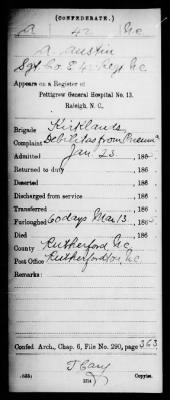 (CONFEDERATE.)
A 42 N.C.
A. Austin
Sgt Co. E 42 Regt N.C.
Appears on a Register of
Pettigrew General Hospital No. 13,
Raleigh, N. C.
Brigade Kirklands
Complaint Debilitas from Pneum
Admitted Jan 23, 186
Returned to duty , 186
Deserted , 186
Discharged from service , 186
Transferred , 186
Furloughed 60 days Mar. 13, 186
Died , 186
County Rutherford N.C.
Post Office Rutherfordton N.C.
Remarks:
Confed. Arch., Chap. 6, File No. 290, page 363
(635) Copyist.